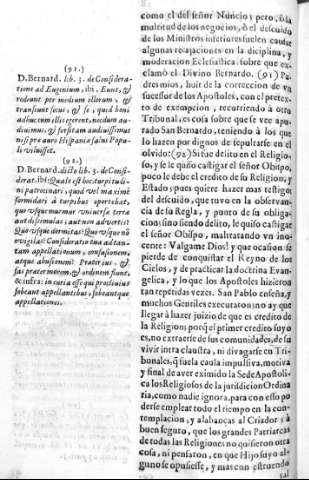 (91.)
D. Bernard. lib. 3. de Considera-
tione ad Eugenium, ibi, Eunt, &
redeunt per medium illorum, &
transeunt sens, & se, quid boni
adhuc cum illis egerent, necdum au-
diuimus, & forsitam audiuissimus
nisi præ auro Hispaniæ salus Popu-
li viluisset.
(92.)
D. Bernard. dicto lib. 3. de Consi-
derat. ibi: Quale est hoc, turpitudi-
ni patrocinari, quod vel maxime
formidari à turpibus oportebat,
quo vsque murmur vniuersæ terræ
aut dissimulas; aut non aduertis?
Quo vsque dormitas? Quo vsque nõ
vigilat Consideratio tua ad tan-
tam appellationum, confusionem,
atque abusionem? Præter ius, &
fas præter morem, & ordinem fiunt,
& infra: in curia essi qui procliuius
fabeant appellantibus, fabeantque
appellationes.
como el del señor Nuncio; pero, ò la
multitud de los negocios, ò el descuido
de los Ministros inferiores suelen causar
algunas relajaciones en la diciplina, y
moderacion Eclesiastica sobre que ex-
clamò el Divino Bernardo. (91) Pa-
dres mios, huir de la correccion de vn
succesor de los Apostoles, con el pretex-
to de exempcion, recurriendo à otro
Tribunal, es cosa sobre que se vee apu-
rado San Bernardo, teniendo à los que
lo hazen por dignos de sepultarse en el
olvido: (92) Si fue delito en el Religio-
so, y se le quiso castigar el señor Obispo,
poco le debe el credito de su Religion, y
Estado; pues quiere hazer mas testigos
del descuido, que tuvo en la observan-
cia de su Regla, y punto de su obliga-
cion: sino siendo delito, le quiso castigar
el señor Obispo, maltratando vn ino-
cente: Valgame Dios! y que ocasion se
pierde de conquistar el Reyno de los
Cielos, y de practicar la doctrina Evan-
gelica, y lo que los Apostoles hizieron
tan repetidas vezes. San Pablo enseña, y
muchos Gentiles executaron ino ay que
llegar à hazer juizio de que es credito de
la Religion; porq̃ el primer credito suyo
es, no extraerse de sus comunidades, de su
vivir intra claustra, ni divagarse en Tri-
bunales, q̃ fue la caula impulsiva, motiva
y final de aver eximido la Sede Apostoli-
ca los Religiosos de la juridicion Ordina
ria, como nadie ignora, para con esso po
derse emplear todo el tiempo en la con-
templacion, y alabanças al Criador, y à
buen seguro, que los grandes Patriarcas
de todas las Religiones no quisieron otra
cosa, ni pensaron, en que Hijo suyo al-
guno se opusiesse, y mas con estruendo